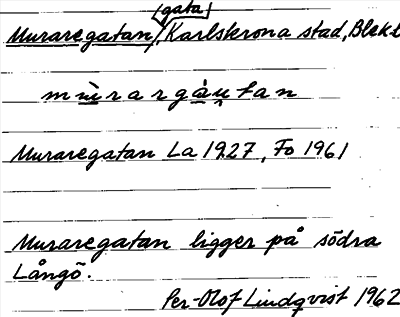 (gata)
Muraregatan, Karlskrona stad, Blek
mùrargàu̯tan
Muraregatan La 1927, Fo 1961
Muraregatan ligger på södra
Långö.
Per-Olof Lindqvist 1962